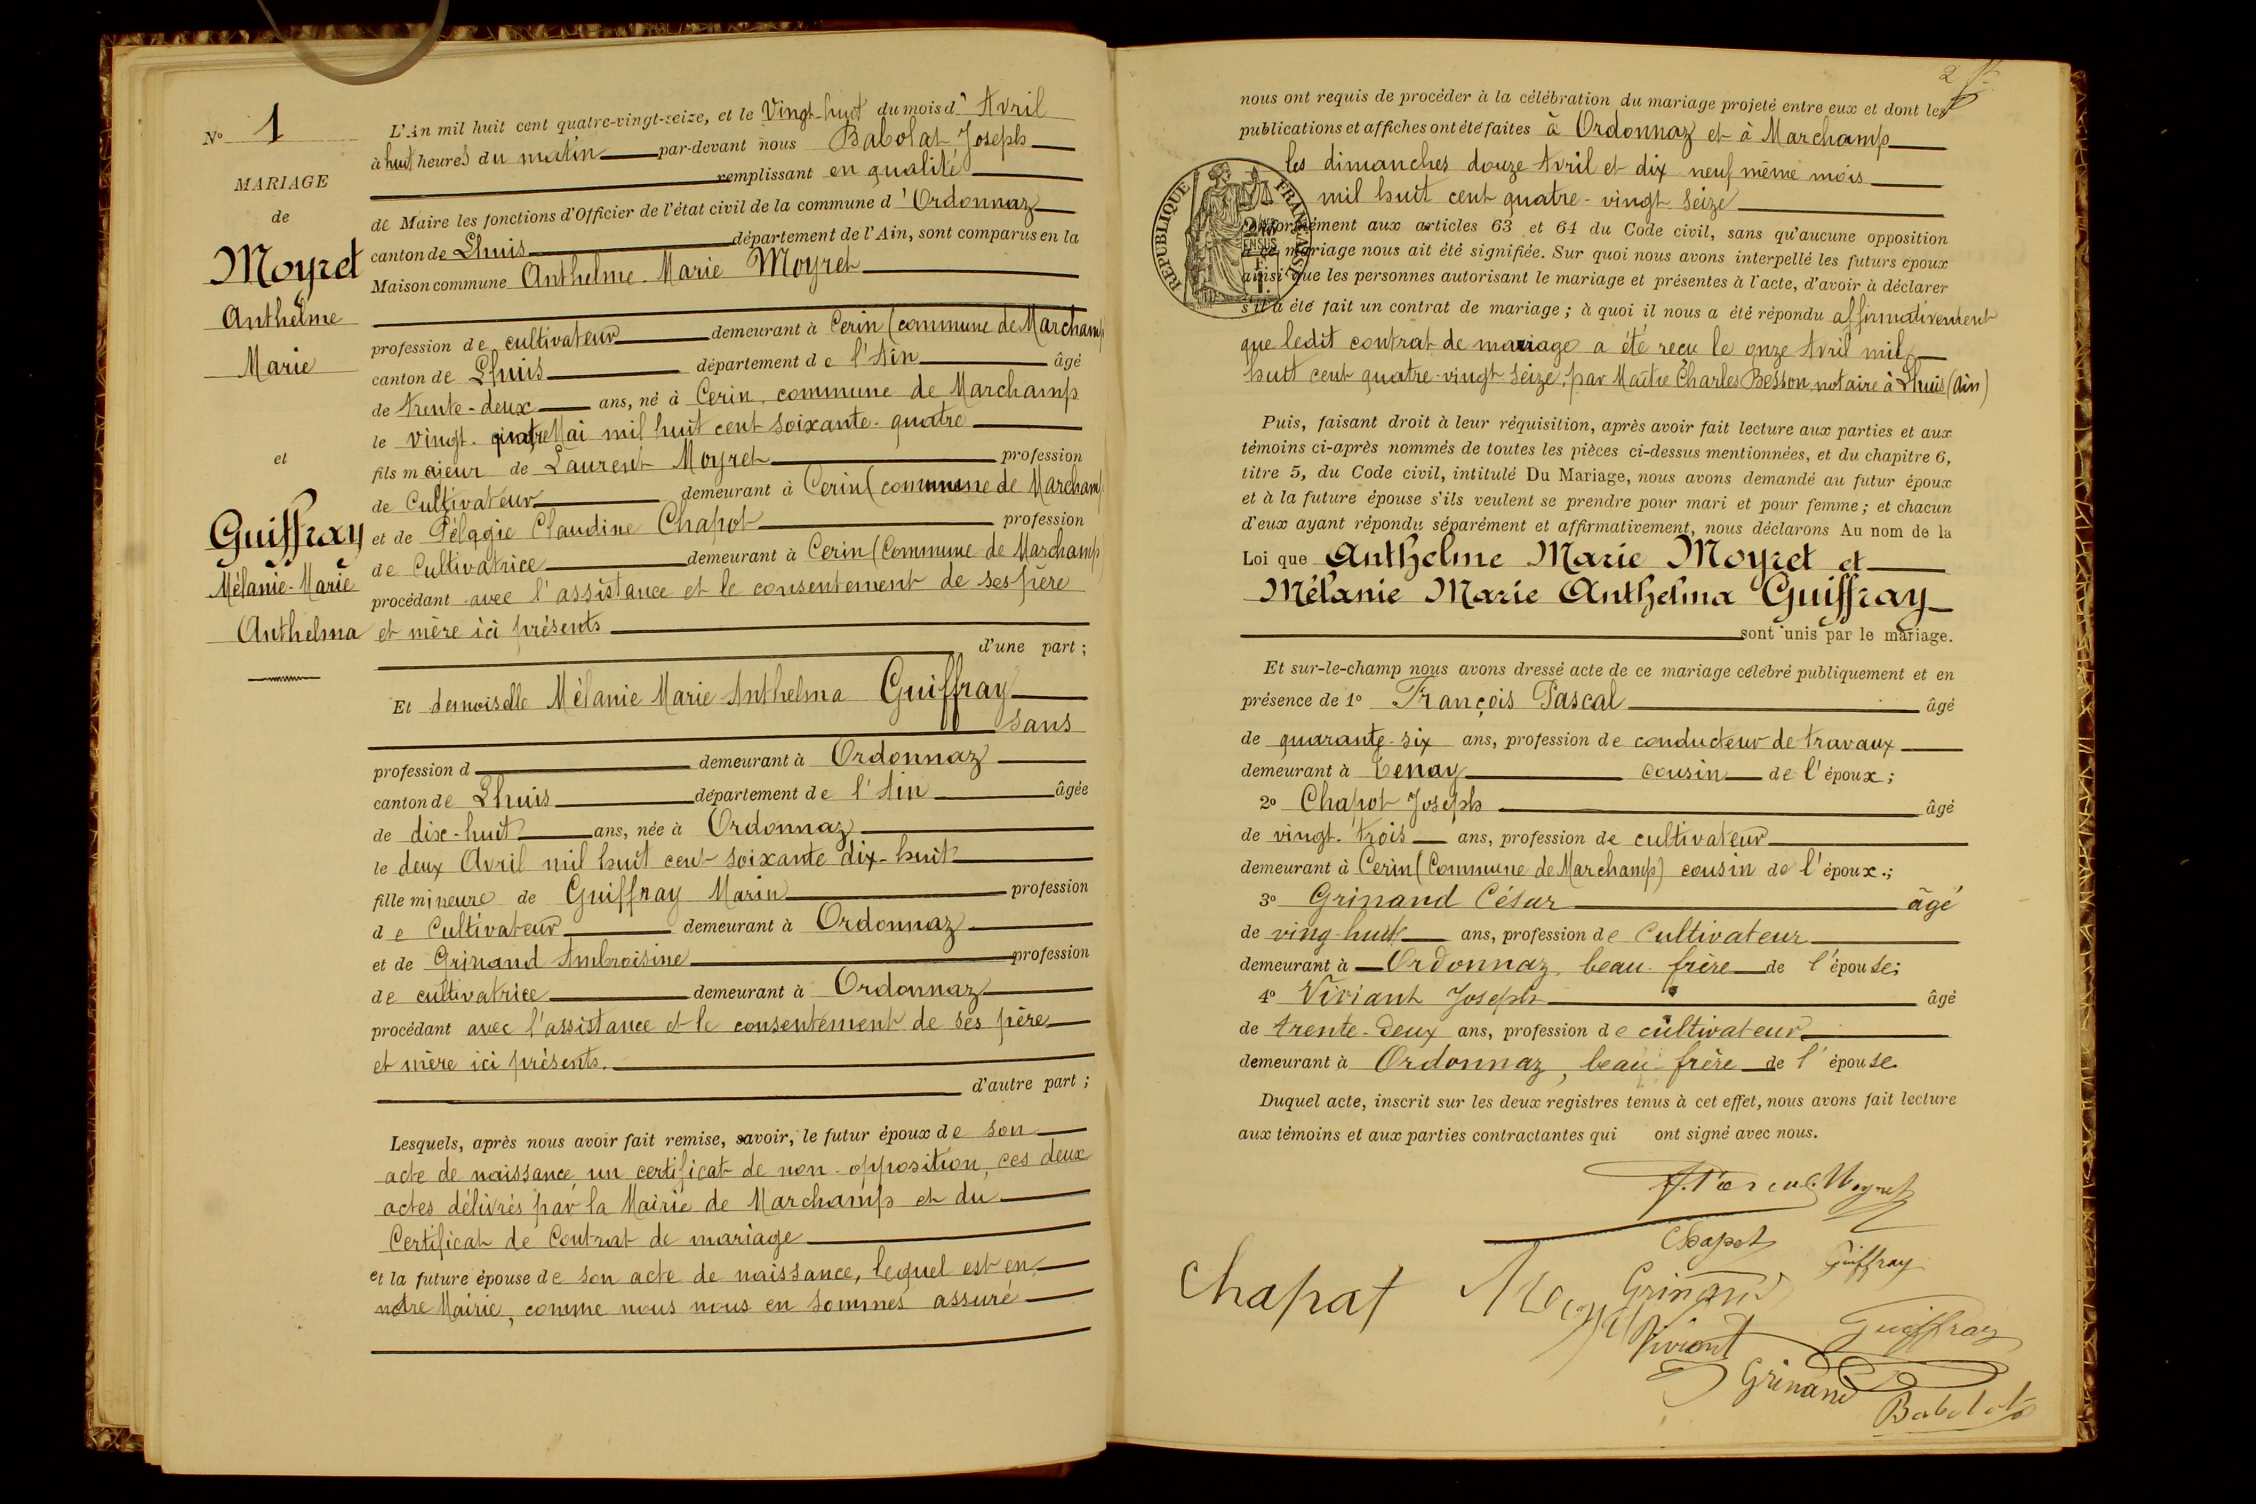 N° 1
MARIAGE
de
Moyret
Anthelme
Marie
et
Guiffray
Mélanie-Marie
Anthelma
L'An mil huit cent quatre-vingt-seize, et le Vingt-huit du mois d' Avril
à huit heures du matin par-devant nous Babolat Joseph
remplissant en qualité
de Maire les fonctions d'Officier de l'état civil de la commune d'Ordonnaz
canton de Lhuis département de l'Ain, sont comparus en la
Maison commune Anthelme-Marie Moyret
profession de cultivateur demeurant à Cerin (commune de Marchamp
canton de Lhuis département de l'Ain âgé
de trente-deux ans, né à Cerin, commune de Marchamp
le vingt-quatre Mai mil huit cent soixante-quatre
fils majeur de Laurent Moyret profession
de Cultivateur demeurant à Cerin (commune de Marchamp
et de Pélagie Claudine Chapot profession
de Cultivatrice demeurant à Cerin (Commune de Marchamp)
procédant avec l'assistance et le consentement de ses père
et mère ici présents
d'une part ;
Et demoiselle Mélanie Marie Anthelma Guiffray
sans
profession d demeurant à Ordonnaz
canton de Lhuis département de l'Ain âgée
de dix-huit ans, née à Ordonnaz
le deux Avril mil huit cent soixante dix-huit
fille mineure de Guiffray Marin profession
de Cultivateur demeurant à Ordonnaz
et de Grinand Ambroisine profession
de cultivatrice demeurant à Ordonnaz
procédant avec l'assistance et le consentement de ses père
et mère ici présents.
d'autre part ;
Lesquels, après nous avoir fait remise, savoir, le futur époux de son
acte de naissance, un certificat de non-opposition, ces deux
actes délivrés par la Mairie de Marchamp et du
Certificat de Contrat de mariage
et la future épouse de son acte de naissance, lequel est en
notre Mairie, comme nous nous en sommes assuré
2
nous ont requis de procéder à la célébration du mariage projeté entre eux et dont les
publications et affiches ont été faites à Ordonnaz et à Marchamp
les dimanches douze Avril et dix neuf même mois
mil huit cent quatre-vingt seize
RÉPUBLIQUE FRANÇAISE
conformément aux articles 63 et 64 du Code civil, sans qu'aucune opposition
à ce mariage nous ait été signifiée. Sur quoi nous avons interpellé les futurs époux
ainsi que les personnes autorisant le mariage et présentes à l'acte, d'avoir à déclarer
s'il a été fait un contrat de mariage ; à quoi il nous a été répondu affirmativement
que ledit contrat de mariage a été reçu le onze Avril mil
huit cent quatre-vingt seize, par Maître Charles Besson, notaire à Lhuis (Ain)
Puis, faisant droit à leur réquisition, après avoir fait lecture aux parties et aux
témoins ci-après nommés de toutes les pièces ci-dessus mentionnées, et du chapitre 6,
titre 5, du Code civil, intitulé Du Mariage, nous avons demandé au futur époux
et à la future épouse s'ils veulent se prendre pour mari et pour femme ; et chacun
d'eux ayant répondu séparément et affirmativement, nous déclarons Au nom de la
Loi que Anthelme Marie Moyret et
Mélanie Marie Anthelma Guiffray
sont unis par le mariage.
Et sur-le-champ nous avons dressé acte de ce mariage célébré publiquement et en
présence de 1° François Pascal âgé
de quarante-six ans, profession de conducteur de travaux
demeurant à Tenay cousin de l'époux ;
2° Chapot Joseph âgé
de vingt-trois ans, profession de cultivateur
demeurant à Cerin (Commune de Marchamp) cousin de l'époux.;
3° Grinand César âgé
de ving-huit ans, profession de Cultivateur
demeurant à Ordonnaz, beau-frère de l'épouse;
4° Viviant Joseph âgé
de trente-deux ans, profession de cultivateur
demeurant à Ordonnaz, beau-frère de l'épouse
Duquel acte, inscrit sur les deux registres tenus à cet effet, nous avons fait lecture
aux témoins et aux parties contractantes qui ont signé avec nous.
Moyret
Chapot
Guiffray
Chapat
Grinand
Viviant
Guiffray
Grinand
Babolat